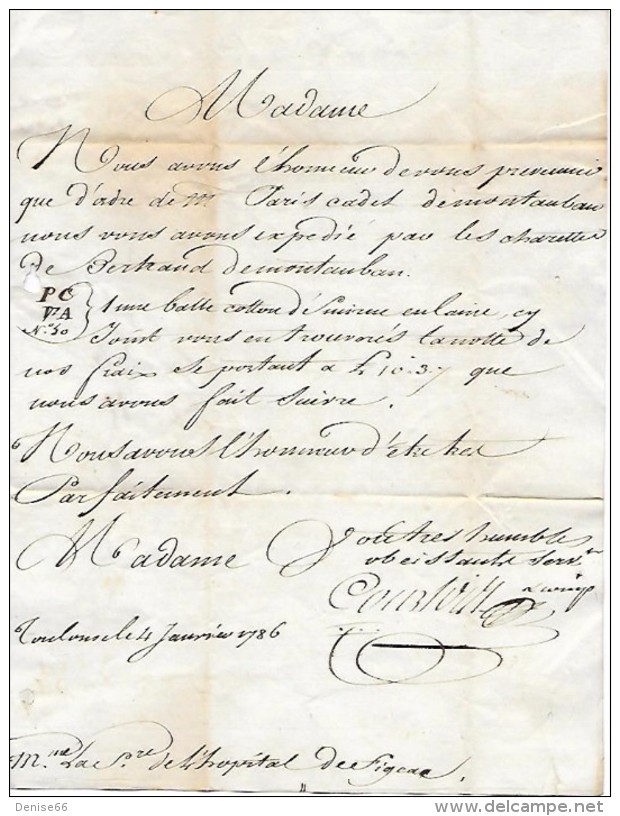 Madame
Nous avons l'honneur de vous prevenir
que d'ordre de Mr Paris cadet de montauban
nous vous avons expedié par les charettes
de Bertrand de montauban.
PC
VA
No. 50
1 une balle cotton en laine, cy
Joint vous en trouverés la notte de
nos fraix se portant a £ 10.3.7 que
nous avons fait suivre.
Nous avons l'honneur d'etre tres
Parfaitement.
Madame Vos tres humble
obeissants serv.rs
Toulouse le 4 Janvier 1786
M.me La S.re de L'hopital de Figeac.
Denise66
delcampe.net